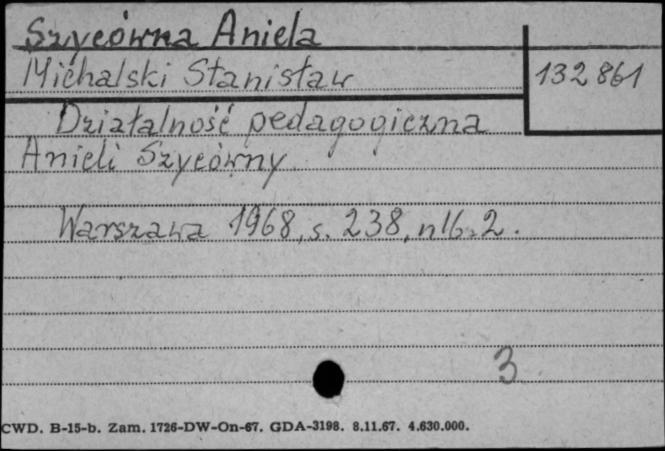 Szycówna Aniela
Michalski Stanisław
132861
Działalność pedagogiczna
Anieli Szycówny
Warszawa 1968, s. 238, nlb. 2.
3
CWD. B-15-b. Zam. 1726-DW-On-67. GDA-3198. 8.11.67. 4.630.000.